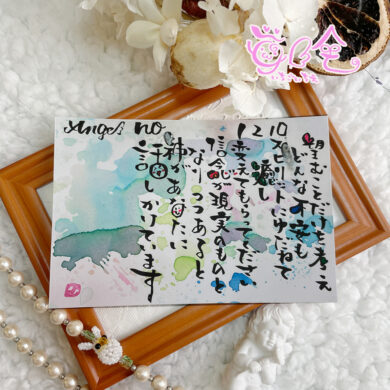 Angel no 12 10
望むことだけを考え
どんな不安も
スピリットにゆだねて
癒し
変えてもらってください
信念が現実のものと
なりつつあると
神があなたに
話しかけてます